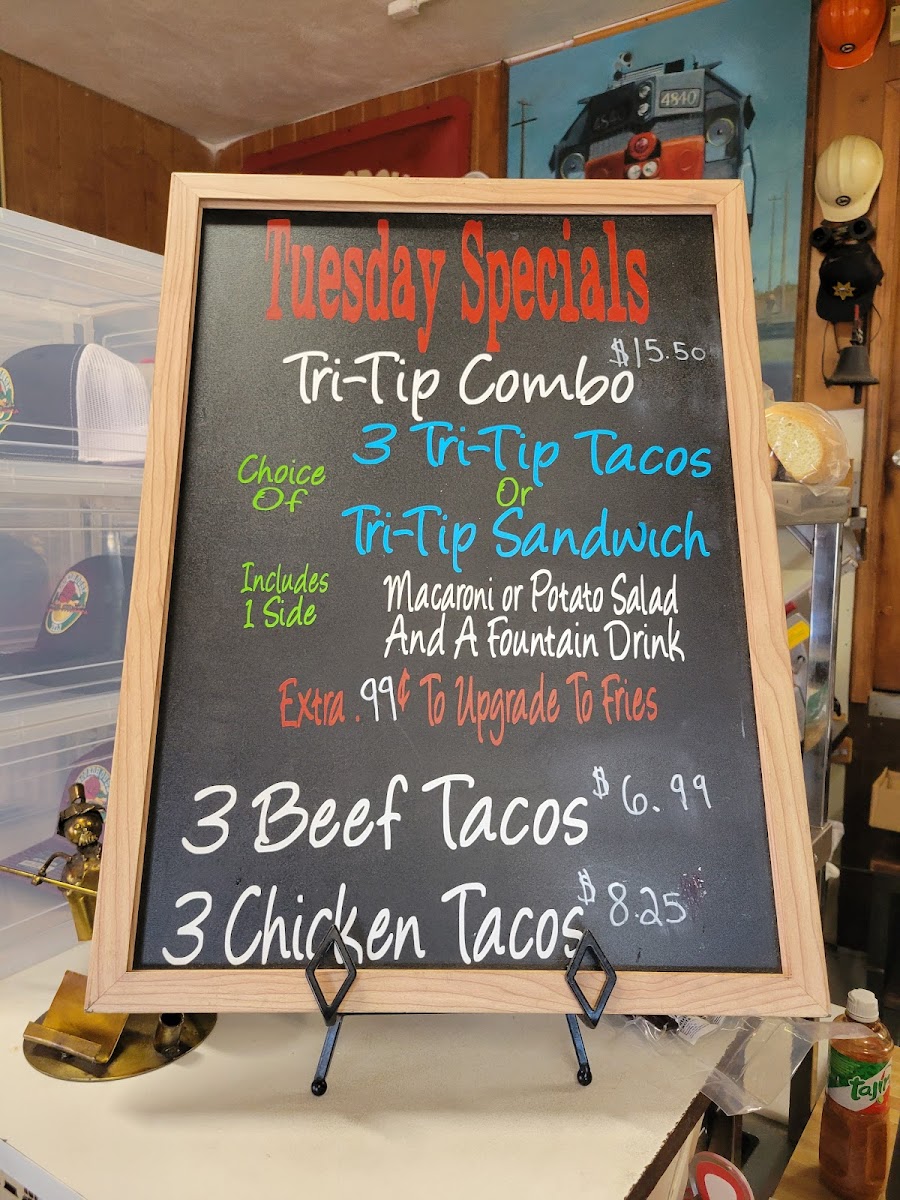 4840
Tuesday Specials
$15.50
Tri-Tip Combo
3 Tri-Tip Tacos
Choice
Of
Or
Tri-Tip Sandwich
Includes
1 Side
Macaroni or Potato Salad
And A Fountain Drink
Extra .99¢ To Upgrade To Fries
3 Beef Tacos $6.99
3 Chicken Tacos $8.25